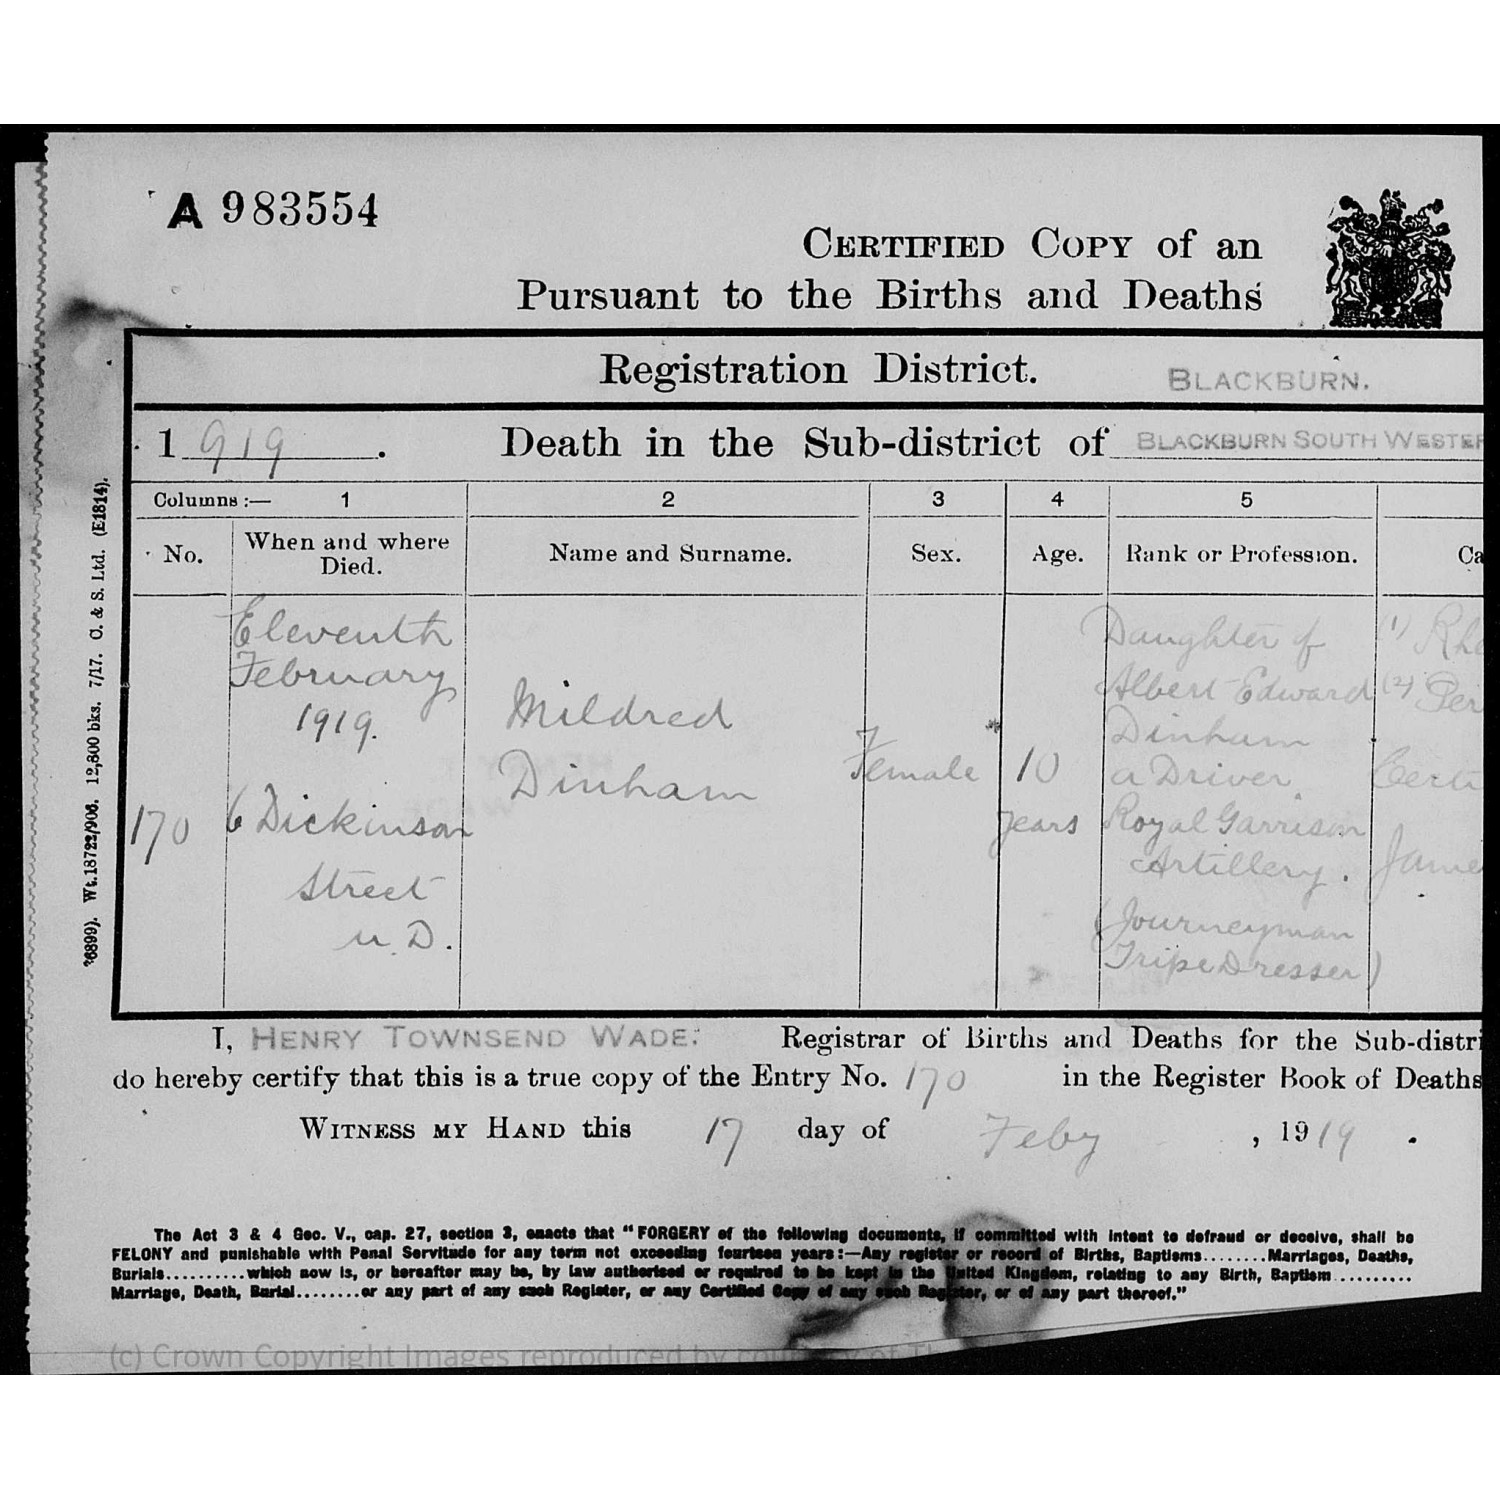 A 983554
CERTIFIED COPY of an
Pursuant to the Births and Deaths
Registration District. BLACKBURN.
1919. Death in the Sub-district of BLACKBURN SOUTH WESTER
Columns:— 1 2 3 4 5
No. When and where Died. Name and Surname. Sex. Age. Rank or Profession. Ca
170
Eleventh
February
1919.
6 Dickinson
Street
U.D.
Mildred
Dinham
Female
10
years
Daughter of
Albert Edward
Dinham
a Driver
Royal Garrison
Artillery.
(Journeyman
Tripe Dresser)
(1) Rhe
(2) Per
Certi
Jame
I, HENRY TOWNSEND WADE. Registrar of Births and Deaths for the Sub-distri
do hereby certify that this is a true copy of the Entry No. 170 in the Register Book of Deaths
WITNESS MY HAND this 17 day of Feby, 1919.
The Act 3 & 4 Geo. V., cap. 27, section 3, enacts that "FORGERY of the following documents, if committed with intent to defraud or deceive, shall be
FELONY and punishable with Penal Servitude for any term not exceeding fourteen years:—Any register or record of Births, Baptisms........Marriages, Deaths,
Burials..........which now is, or hereafter may be, by law authorised or required to be kept in the United Kingdom, relating to any Birth, Baptism..........
Marriage, Death, Burial........or any part of any such Register, or any Certified Copy of any such Register, or of any part thereof."
6899). Wt.18722/906. 12,800 bks. 7/17. O. & S. Ltd. (E1814).
(c) Crown Copyright Images reproduced by courtesy of T